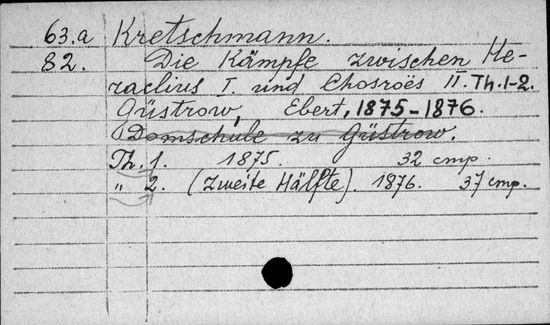 63.a Kretschmann.
82. Die Kämpfe zwischen He-
raclius I. und Chosroës II. Th. 1-2.
Güstrow, Ebert, 1875-1876.
Domschule zu Güstrow.
Th. 1. 1875. 32 стр.
" 2. (Zweite Hälfte). 1876. 37 стр.